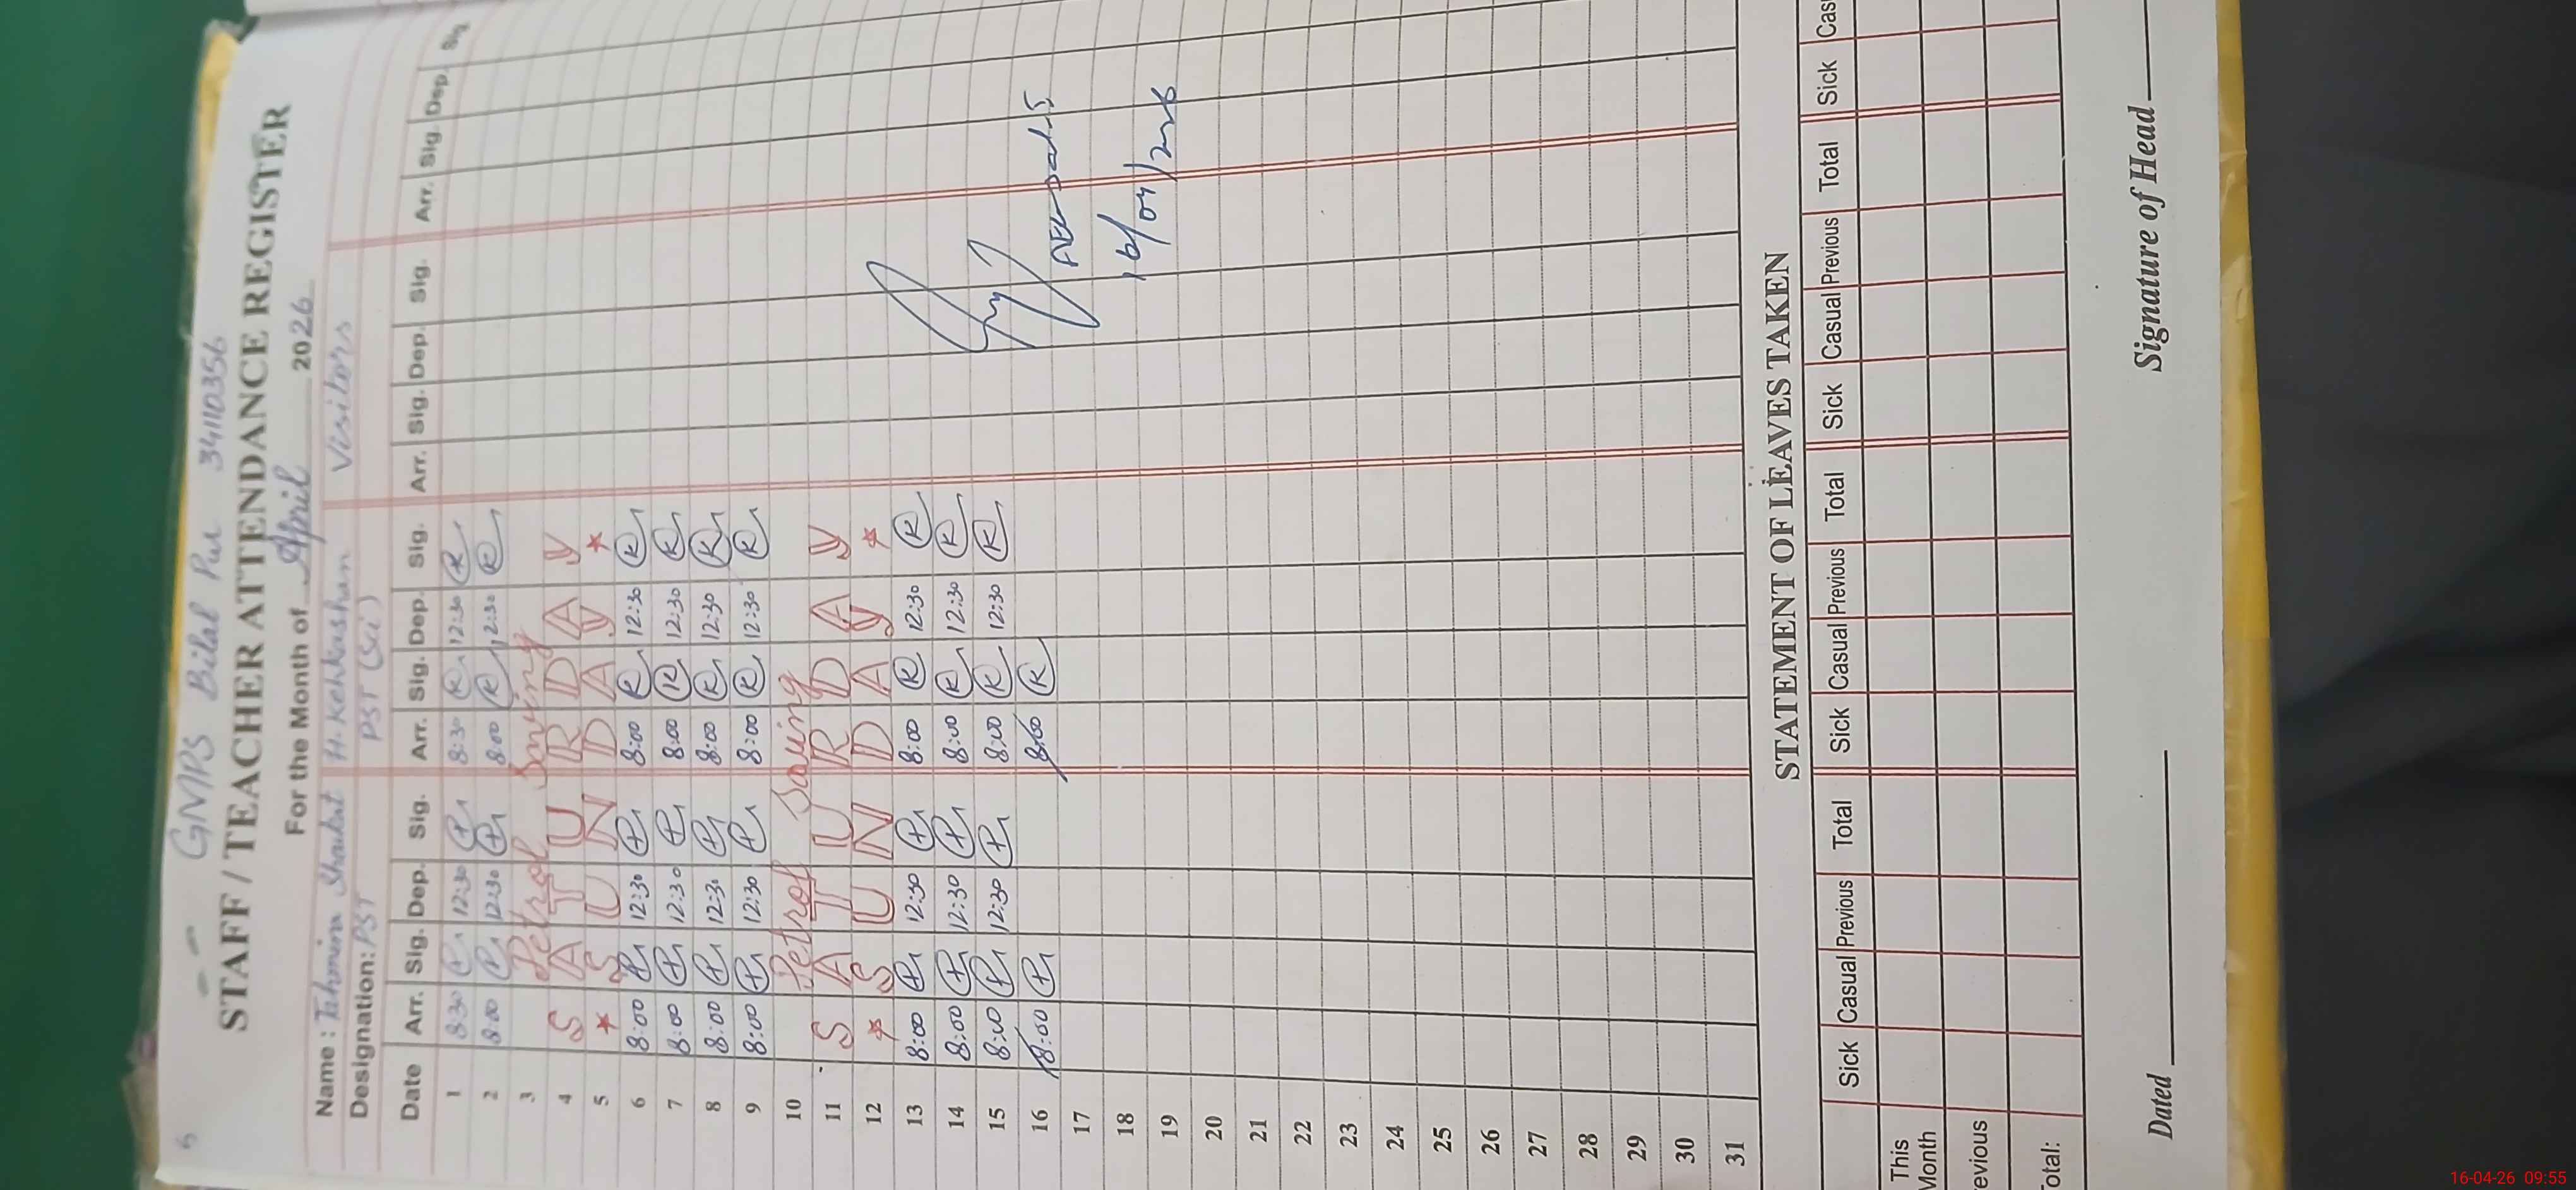 6 GNPS Bilal Pur 341110356
STAFF / TEACHER ATTENDANCE REGISTER
For the Month of April 2026
Name : Tahmina Shaukat H. Kehkashan Visitors
Designation: PST PST (Sci)
Date Arr. Sig. Dep. Sig. Arr. Sig. Dep. Sig. Arr. Sig. Dep. Sig. Arr. Sig. Dep. Sig
1 8:30 12:30 8:30 12:30
2 8:00 12:30 8:00 12:30
3 Petrol Saving
4 S A T U R D A Y
5 * S U N D A Y *
6 8:00 12:30 8:00 12:30
7 8:00 12:30 8:00 12:30
8 8:00 12:30 8:00 12:30
9 8:00 12:30 8:00 12:30
10 Petrol Saving
11 S A T U R D A Y
12 * S U N D A Y *
13 8:00 12:30 8:00 12:30
14 8:00 12:30 8:00 12:30
15 8:00 12:30 8:00 12:30
16 8:00 8:00
17
18
19
20
21
22
23
24
25
26
27
28
29
30
31
16/04/2026
STATEMENT OF LEAVES TAKEN
Sick Casual Previous Total Sick Casual Previous Total Sick Casual Previous Total Sick Cas
This Month
evious
otal:
Dated Signature of Head
16-04-26 09:55